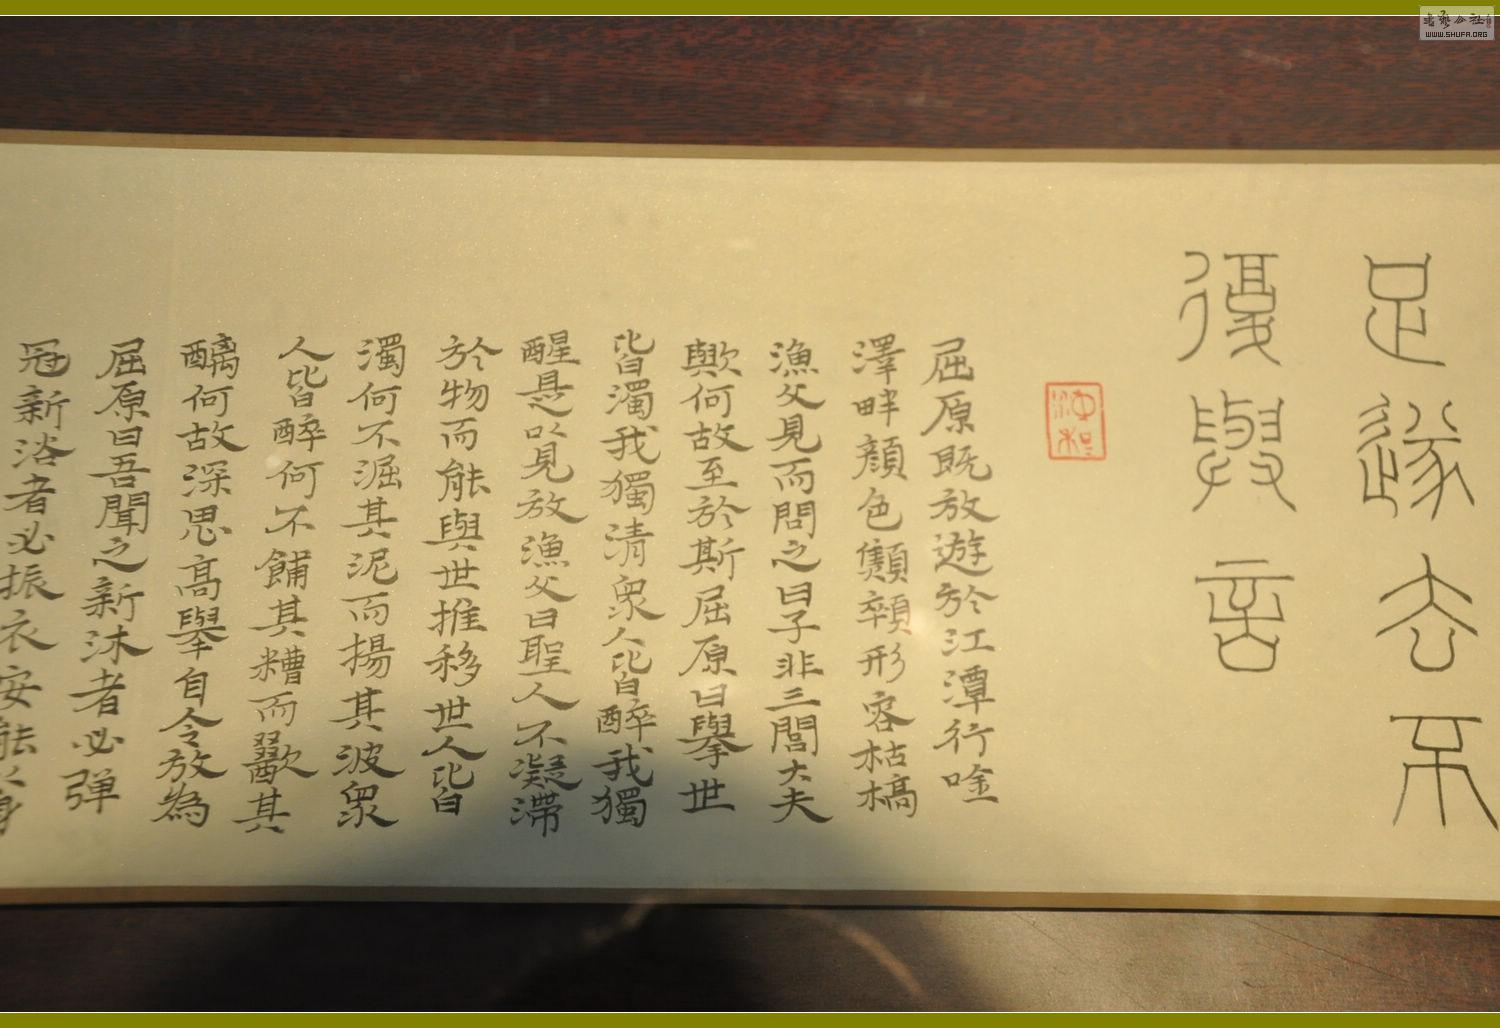 足遂去不
復與言
屈原既放遊於江潭行唫
澤畔顏色顦顇形容枯槁
漁父見而問之曰子非三閭大夫
歟何故至於斯屈原曰舉世
皆濁我獨清眾人皆醉我獨
醒是以見放漁父曰聖人不凝滯
於物而能與世推移世人皆
濁何不淈其泥而揚其波眾
人皆醉何不餔其糟而歠其
醨何故深思高舉自令放為
屈原曰吾聞之新沐者必彈
冠新浴者必振衣安能以身
WWW.SHUFA.ORG